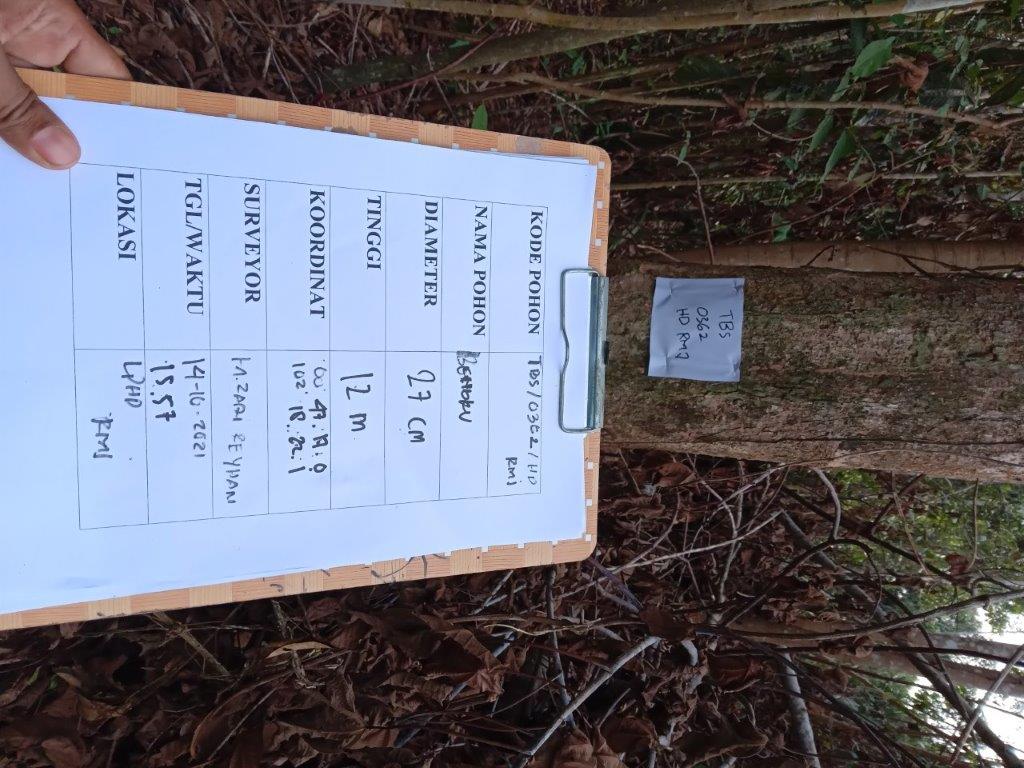 TBS
0362
HD RMJ
KODE POHON TBS/0362/HD
RMJ
NAMA POHON
DIAMETER 27 CM
TINGGI 12 m
KOORDINAT 00 47. 17. 0
102 18. 22. 1
SURVEYOR M. ZARI REYHAN
TGL/WAKTU 14-10-2021
15.57
LOKASI LPHD
RMJ